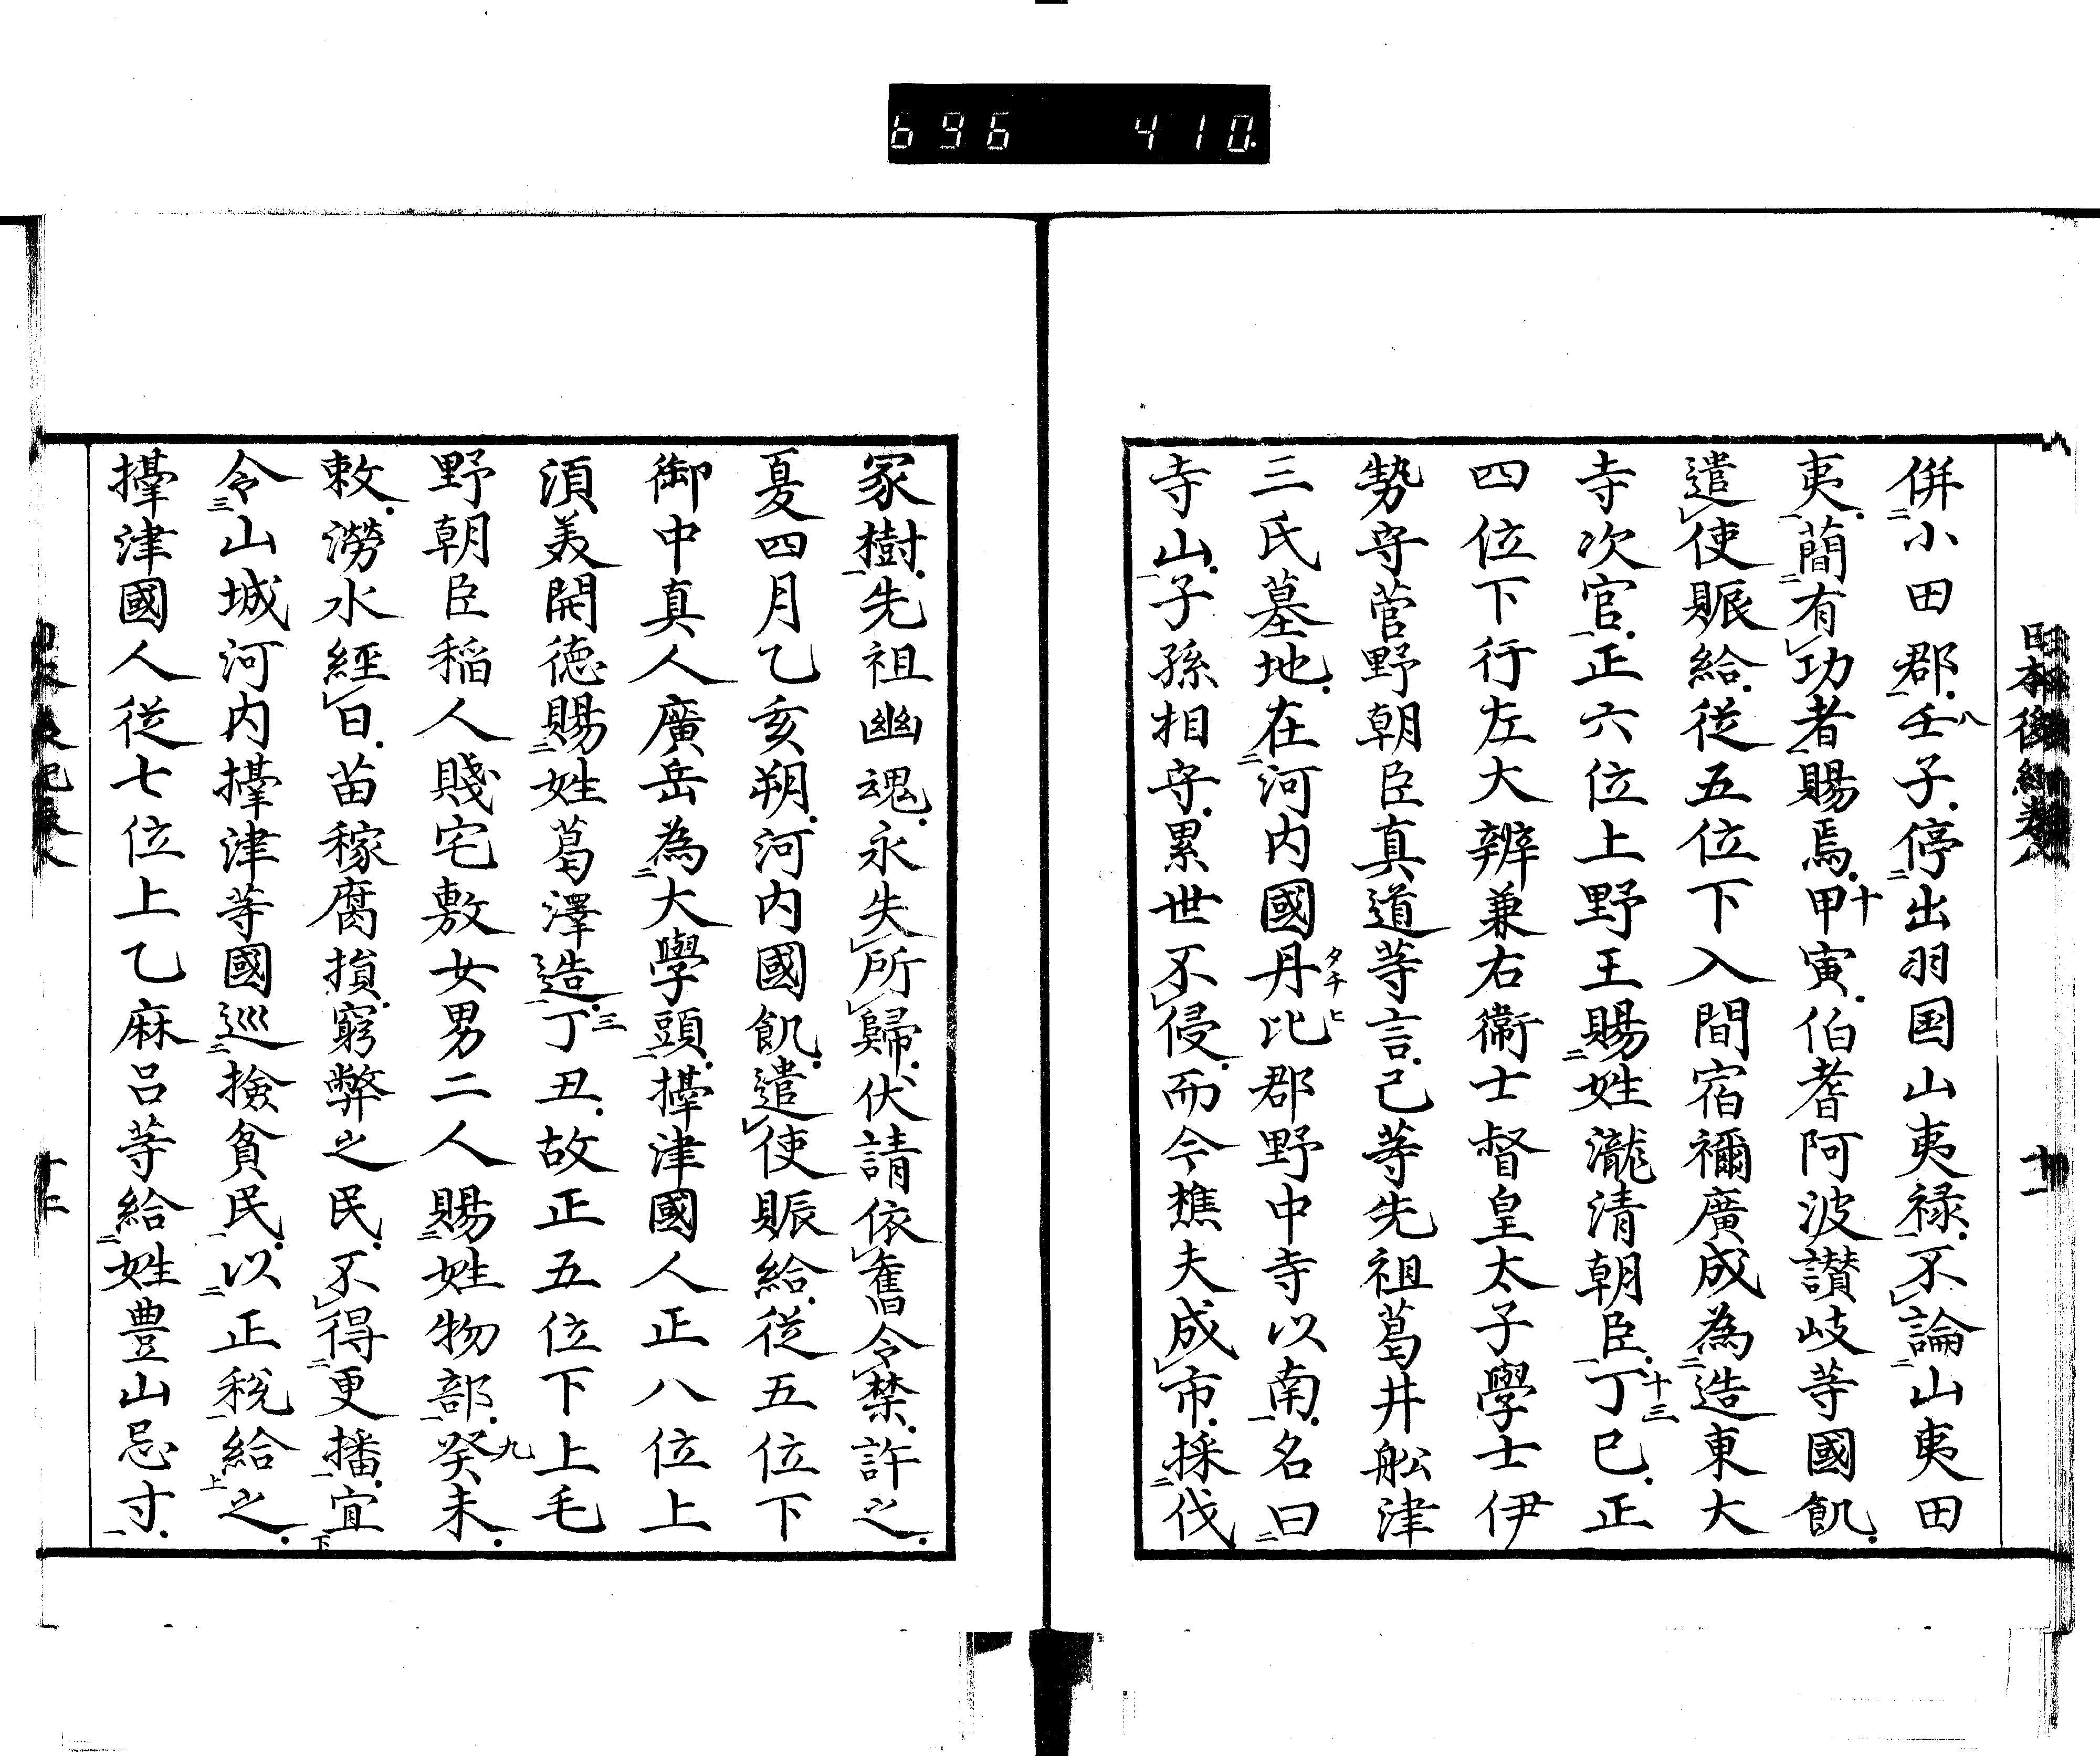 696 410
日本後紀卷八
十一
併小田郡壬子停出羽国山夷禄不論山夷田
夷簡有功者賜焉甲寅伯耆阿波讃岐等國飢
遣使賑給從五位下入間宿禰廣成為造東大
寺次官正六位上野王賜姓瀧清朝臣丁巳正
四位下行左大辨兼右衛士督皇太子學士伊
勢守菅野朝臣真道等言己等先祖葛井舩津
三氏墓地在河内國丹比郡野中寺以南名曰
寺山子孫相守累世不侵而今樵夫成市採伐
冢樹先祖幽魂永失所歸伏請依舊令禁許之
夏四月乙亥朔河内國飢遣使賑給從五位下
御中真人廣岳為大學頭攝津國人正八位上
須美開德賜姓葛澤造丁丑故正五位下上毛
野朝臣稲人賤宅敷女男二人賜姓物部癸未
敕澇水經日苗稼腐損窮弊之民不得更播宜
令山城河内攝津等國巡撿貧民以正税給之
攝津國人從七位上乙麻呂等給姓豊山忌寸